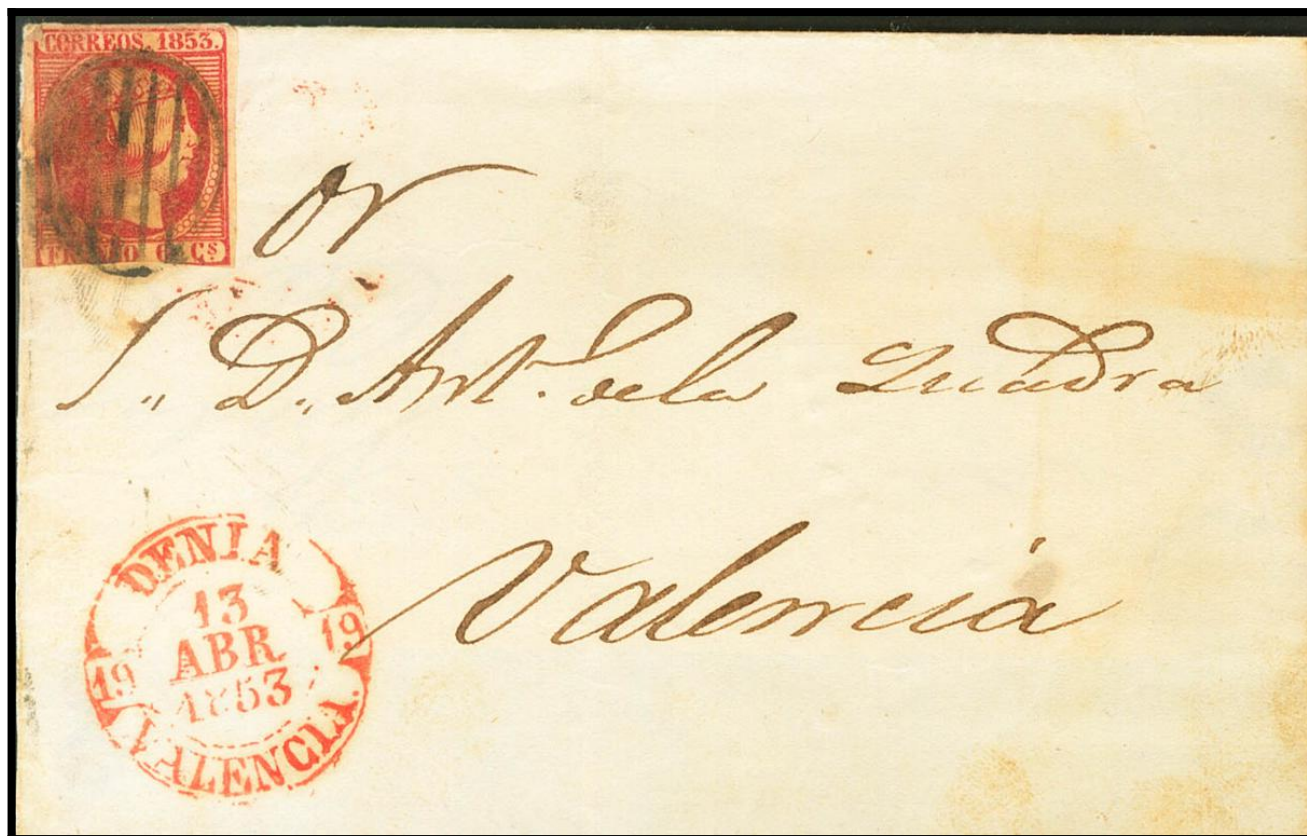 CORREOS. 1853.
FRANCO 6 Cs
S.,, D.,, Ant. de la Quadra
Valencia
DENIA
19 13 19
ABR
1853
VALENCIA.